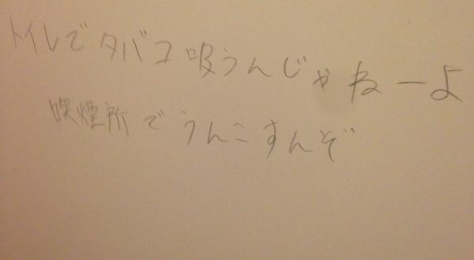 トイレでタバコ吸うんじゃねーよ
喫煙所でうんこすんぞ